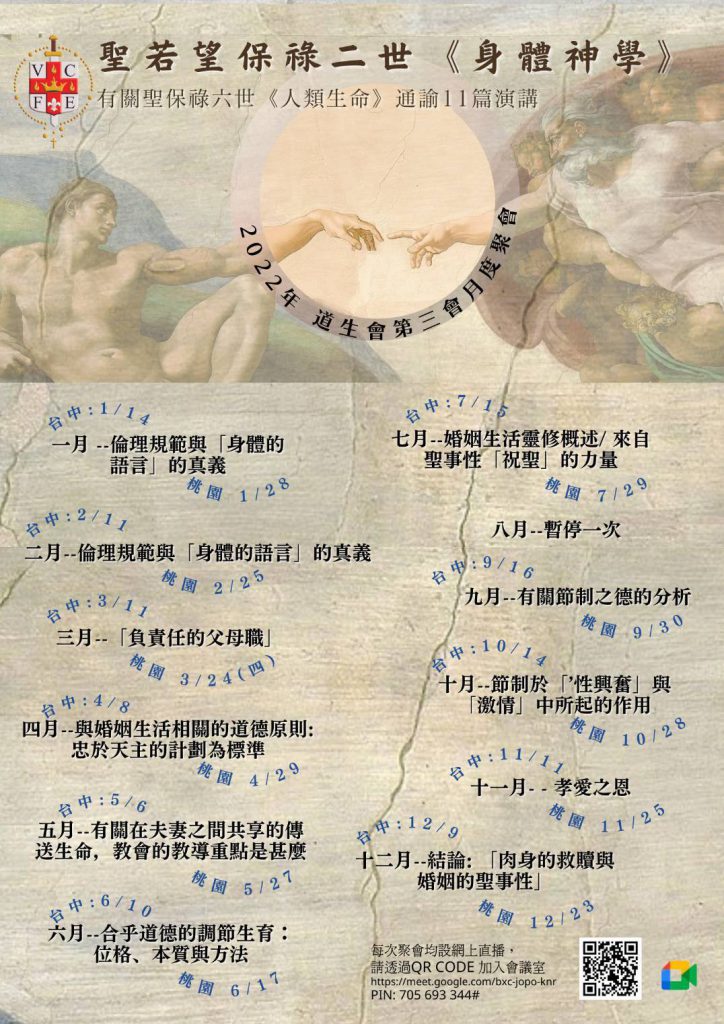 V C
F E
聖若望保祿二世《身體神學》
有關聖保祿六世《人類生命》通諭11篇演講
2022年 道生會第三會月度聚會
台中:1/14
一月 --倫理規範與「身體的
語言」的真義
桃園 1/28
台中:2/11
二月--倫理規範與「身體的語言」的真義
桃園 2/25
台中:3/11
三月--「負責任的父母職」
桃園 3/24(四)
台中:4/8
四月--與婚姻生活相關的道德原則:
忠於天主的計劃為標準
桃園 4/29
台中:5/6
五月--有關在夫妻之間共享的傳
送生命，教會的教導重點是甚麼
桃園 5/27
台中:6/10
六月--合乎道德的調節生育：
位格、本質與方法
桃園 6/17
台中:7/15
七月--婚姻生活靈修概述/ 來自
聖事性「祝聖」的力量
桃園 7/29
八月--暫停一次
台中:9/16
九月--有關節制之德的分析
桃園 9/30
台中:10/14
十月--節制於「’性興奮」與
「激情」中所起的作用
桃園 10/28
台中:11/11
十一月- - 孝愛之恩
桃園 11/25
台中:12/9
十二月--結論:「肉身的救贖與
婚姻的聖事性」
桃園 12/23
每次聚會均設網上直播，
請透過QR CODE 加入會議室
https://meet.google.com/bxc-jopo-knr
PIN: 705 693 344#